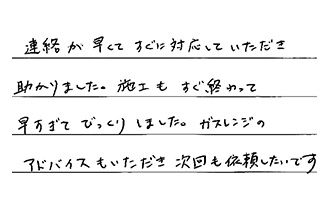 連絡が早くて すぐに対応していただき
助かりました。施工も すぐ終わって
早すぎて びっくりしました。ガスレンジの
アドバイスもいただき 次回も依頼したいです